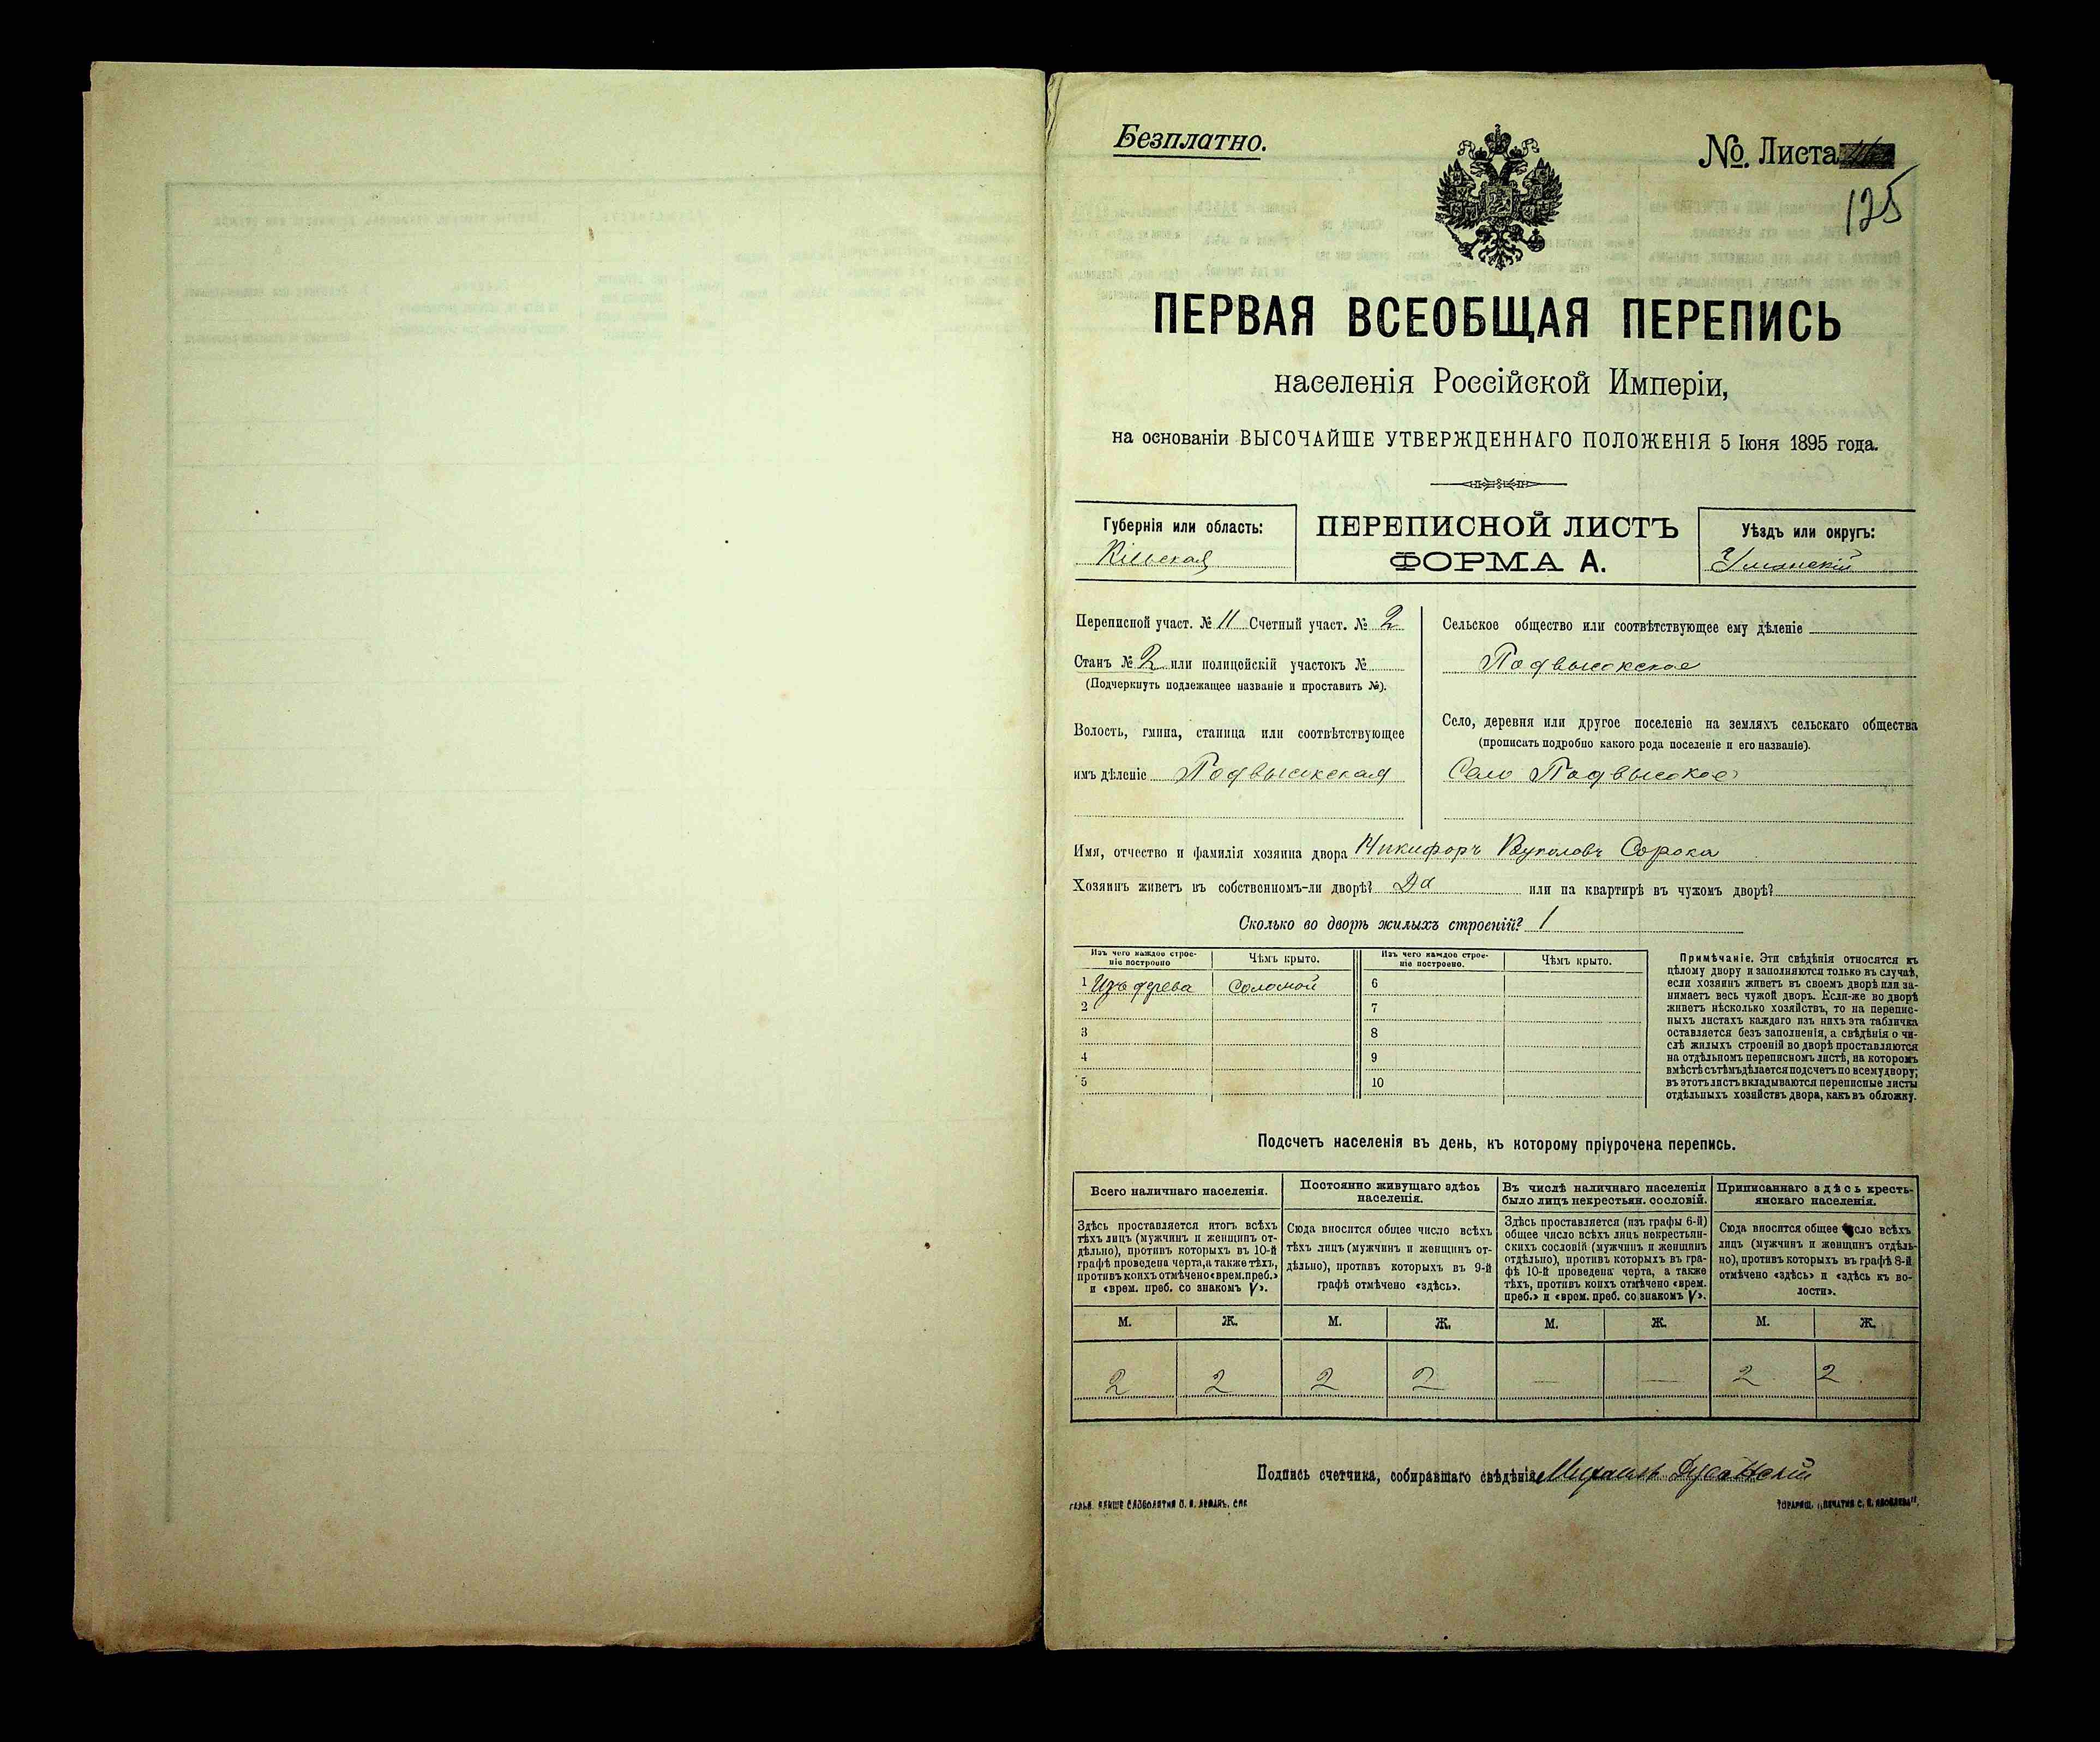 Безплатно.
№. Листа
125
ПЕРВАЯ ВСЕОБЩАЯ ПЕРЕПИСЬ
населенія Россійской Имперіи,
на основаніи ВЫСОЧАЙШЕ УТВЕРЖДЕННАГО ПОЛОЖЕНІЯ 5 Іюня 1895 года.
Губернія или область:
Кіевская
ПЕРЕПИСНОЙ ЛИСТЪ
ФОРМА А.
Уѣздъ или округъ:
Уманскій
Переписной участ. № 11 Счетный участ. № 2
Станъ № 2 или полицейскій участокъ №
(Подчеркнуть подлежащее названіе и проставить №).
Волость, гмина, станица или соотвѣтствующее
имъ дѣленіе Подвысокская
Сельское общество или соотвѣтствующее ему дѣленіе
Подвысокское
Село, деревня или другое поселеніе на земляхъ сельскаго общества
(прописать подробно какого рода поселеніе и его названіе).
Село Подвысокое
Имя, отчество и фамилія хозяина двора Никифоръ Вуколовъ Сорока
Хозяинъ живетъ въ собственномъ-ли дворѣ? Да или на квартирѣ въ чужомъ дворѣ?
Сколько во дворѣ жилыхъ строеній? 1
Изъ чего каждое строе-
ніе построено
Чѣмъ крыто.
Изъ чего каждое строе-
ніе построено.
Чѣмъ крыто.
1 Изъ дерева Соломой 6
2 7
3 8
4 9
5 10
Примѣчаніе. Эти свѣдѣнія относятся къ
цѣлому двору и заполняются только въ случаѣ,
если хозяинъ живетъ въ своемъ дворѣ или за-
нимаетъ весь чужой дворъ. Если-же во дворѣ
живетъ нѣсколько хозяйствъ, то на перепис-
ныхъ листахъ каждаго изъ нихъ эта табличка
оставляется безъ заполненія, а свѣдѣнія о чи-
слѣ жилыхъ строеній во дворѣ проставляются
на отдѣльномъ переписномъ листѣ, на которомъ
вмѣстѣ съ тѣмъ дѣлается подсчетъ по всему двору;
въ этотъ листъ вкладываются переписные листы
отдѣльныхъ хозяйствъ двора, какъ въ обложку.
Подсчетъ населенія въ день, къ которому пріурочена перепись.
Всего наличнаго населенія.
Здѣсь проставляется итогъ всѣхъ
тѣхъ лицъ (мужчинъ и женщинъ от-
дѣльно), противъ которыхъ въ 10-й
графѣ проведена черта, а также тѣхъ,
противъ коихъ отмѣчено «врем. преб.»
и «врем. преб. со знакомъ V».
Постоянно живущаго здѣсь
населенія.
Сюда вносится общее число всѣхъ
тѣхъ лицъ (мужчинъ и женщинъ от-
дѣльно), противъ которыхъ въ 9-й
графѣ отмѣчено «здѣсь».
Въ числѣ наличнаго населенія
было лицъ некрестьян. сословій.
Здѣсь проставляется (изъ графы 6-й)
общее число всѣхъ лицъ некрестьян-
скихъ сословій (мужчинъ и женщинъ
отдѣльно), противъ которыхъ въ гра-
фѣ 10-й проведена черта, а также
тѣхъ, противъ коихъ отмѣчено «врем.
преб.» и «врем. преб. со знакомъ V».
Приписаннаго здѣсь кресть-
янскаго населенія.
Сюда вносится общее число всѣхъ
лицъ (мужчинъ и женщинъ отдѣль-
но), противъ которыхъ въ графѣ 8-й
отмѣчено «здѣсь» и «здѣсь къ во-
лости».
М. Ж. М. Ж. М. Ж. М. Ж.
2 2 2 2 — — 2 2
Подпись счетчика, собиравшаго свѣдѣнія Михаилъ